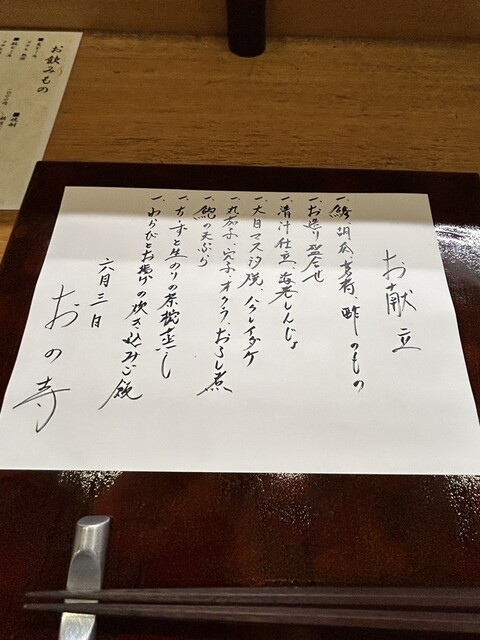 お献立
一、鱧、胡瓜、茗荷、酢のもの
一、お造り盛合せ
一、清汁仕立、海老しんじょ
一、大目マス汐焼、ハクレイダケ
一、丸茄子、穴子、オクラ、おろし煮
一、鮑の天ぷら
一、ちーずと生のりの茶椀蒸し
一、わらびとお揚げの炊き込みご飯
六月三日
おの寺
お飲みもの